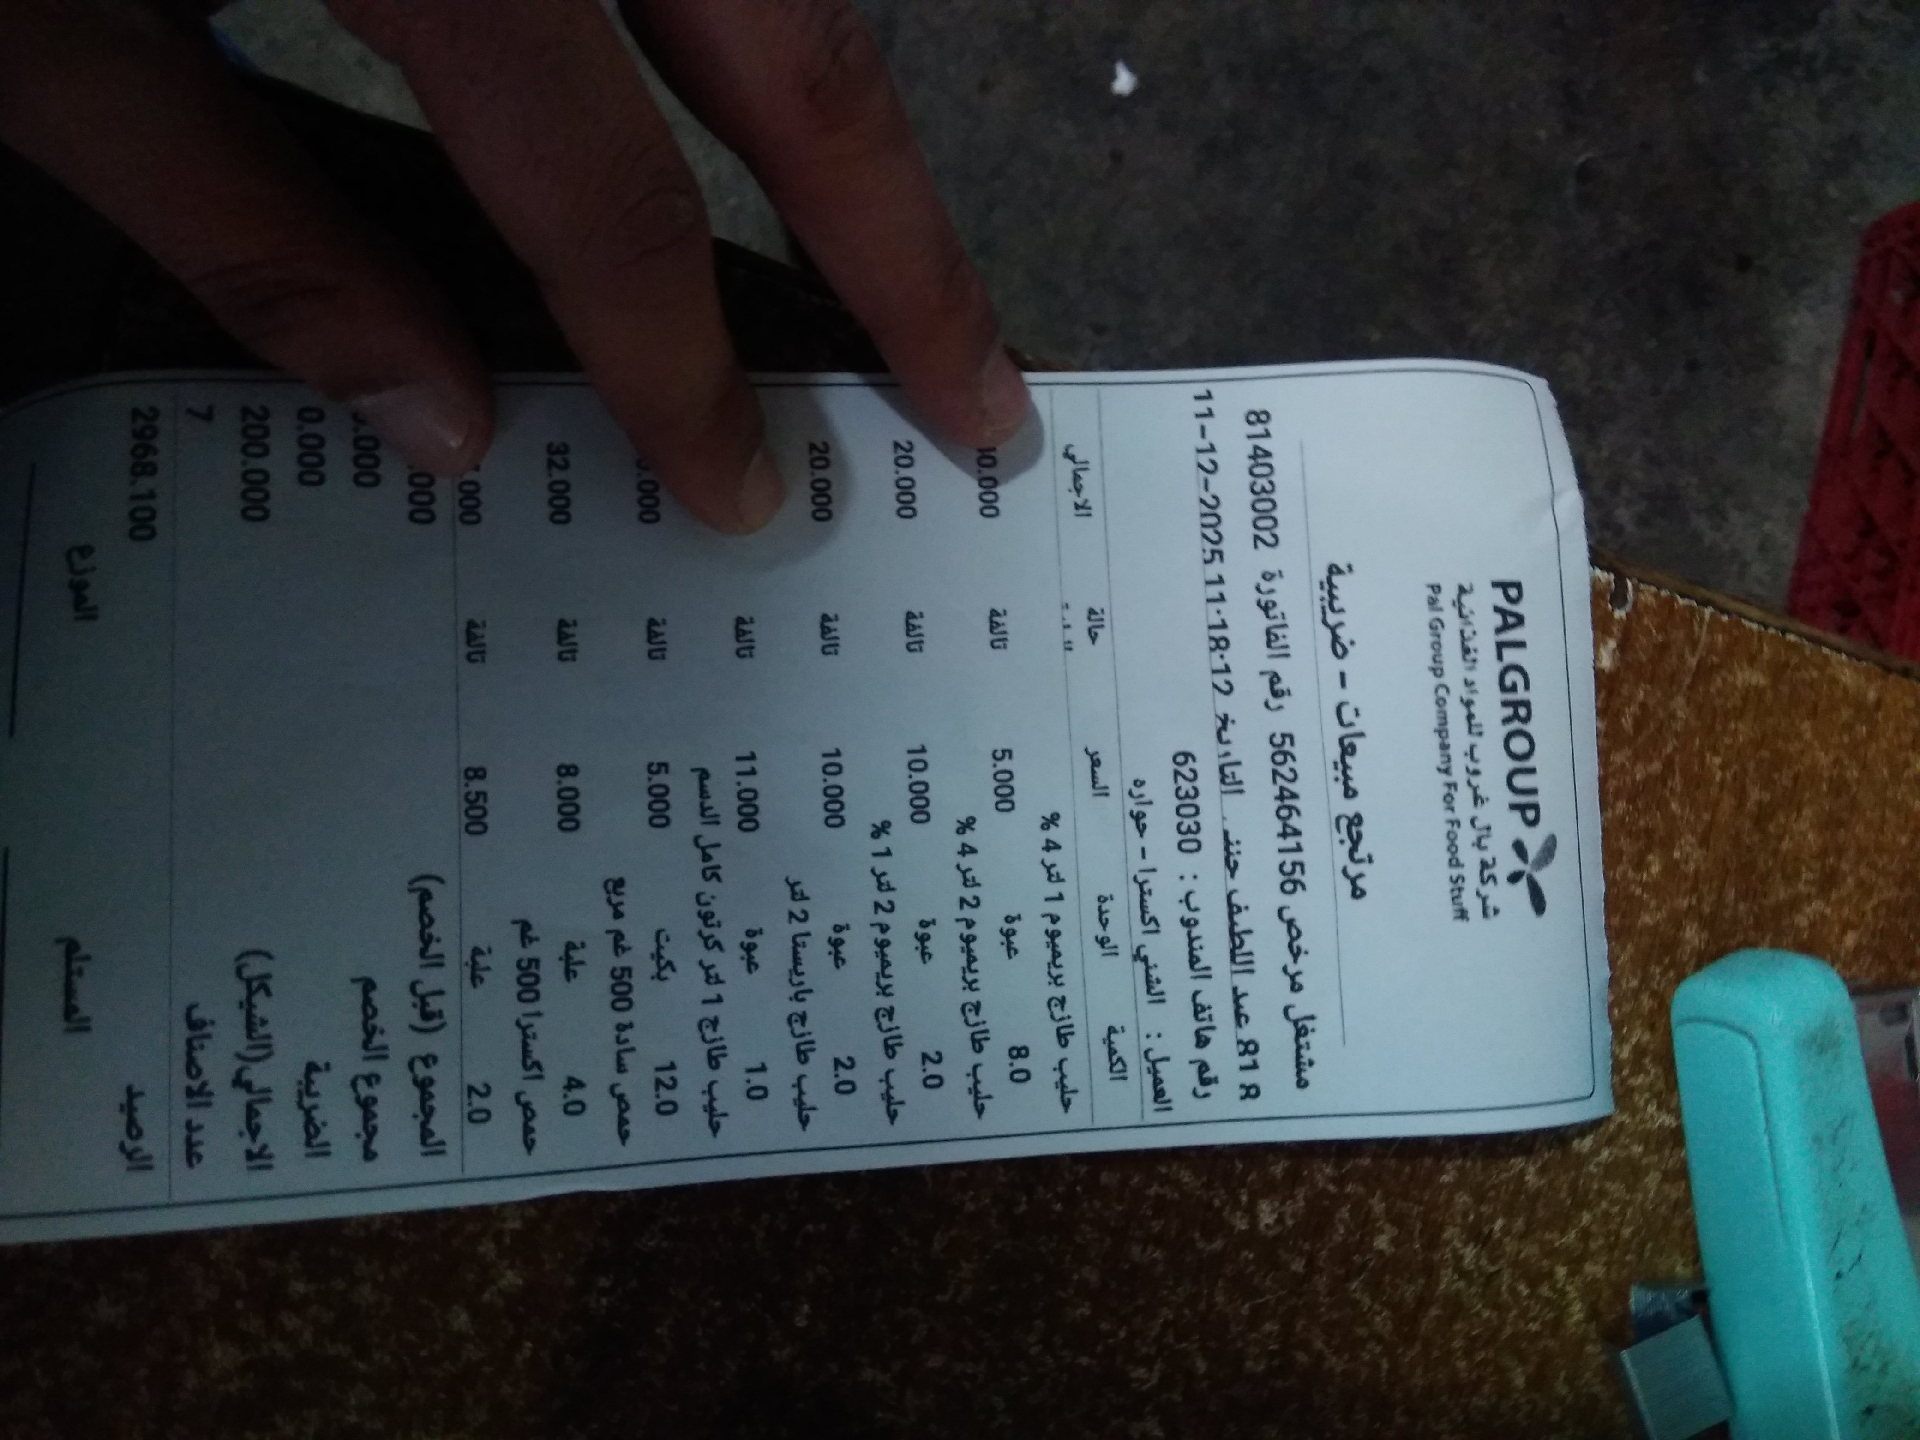 PALGROUP
شركة بال غروب للمواد الغذائية
Pal Group Company For Food Stuff
مرتجع مبيعات - ضريبية
مشتغل مرخص 562464156 رقم الفاتورة 81403002
818 عبد اللطيف التاريخ 11:18:12 11-12-2025
رقم هاتف المندوب : 623030
العميل : الشني اكسترا - حواره
الكمية الوحدة السعر حالة الاجمالي
حليب طازج بريميوم 1 لتر 4 %
8.0 عبوة 5.000 تالفة
حليب طازج بريميوم 2 لتر 4 %
2.0 عبوة 10.000 تالفة 20.000
حليب طازج بريميوم 2 لتر 1 %
2.0 عبوة 10.000 تالفة 20.000
حليب طازج باريستا 2 لتر
1.0 عبوة 11.000 تالفة
حليب طازج 1 لتر كرتون كامل الدسم
12.0 بكيت 5.000 تالفة
حمص سادة 500 غم مربع
4.0 علبة 8.000 تالفة 32.000
حمص اكسترا 500 غم
2.0 علبة 8.500 تالفة
المجموع (قبل الخصم)
مجموع الخصم
الضريبة 0.000
الاجمالي(الشيكل) 200.000
عدد الاصناف 7
الرصيد 2968.100
المستلم الموزع